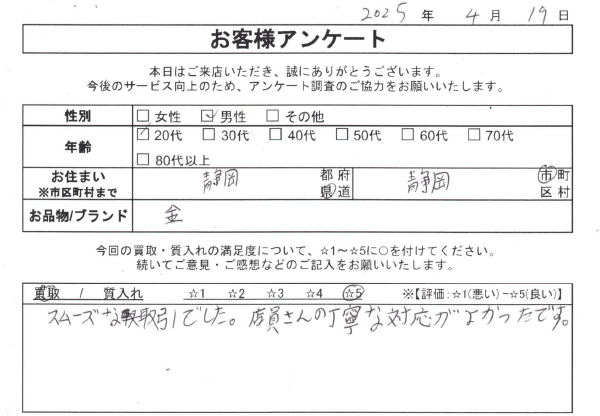 2025 年 4 月 19 日
お客様アンケート
本日はご来店いただき、誠にありがとうございます。
今後のサービス向上のため、アンケート調査のご協力をお願いいたします。
性別 □ 女性 ☑ 男性 □ その他
年齢 ☑ 20代 □ 30代 □ 40代 □ 50代 □ 60代 □ 70代
□ 80代以上
お住まい ※市区町村まで 静岡 都府県道 静岡 市町区村
お品物/ブランド 金
今回の買取・質入れの満足度について、☆1～☆5に○を付けてください。
続いてご意見・ご感想などのご記入をお願いいたします。
買取 / 質入れ ☆1 ☆2 ☆3 ☆4 ☆5 ※【評価:☆1(悪い)－☆5(良い)】
スムーズな取引でした。店員さんの丁寧な対応がよかったです。